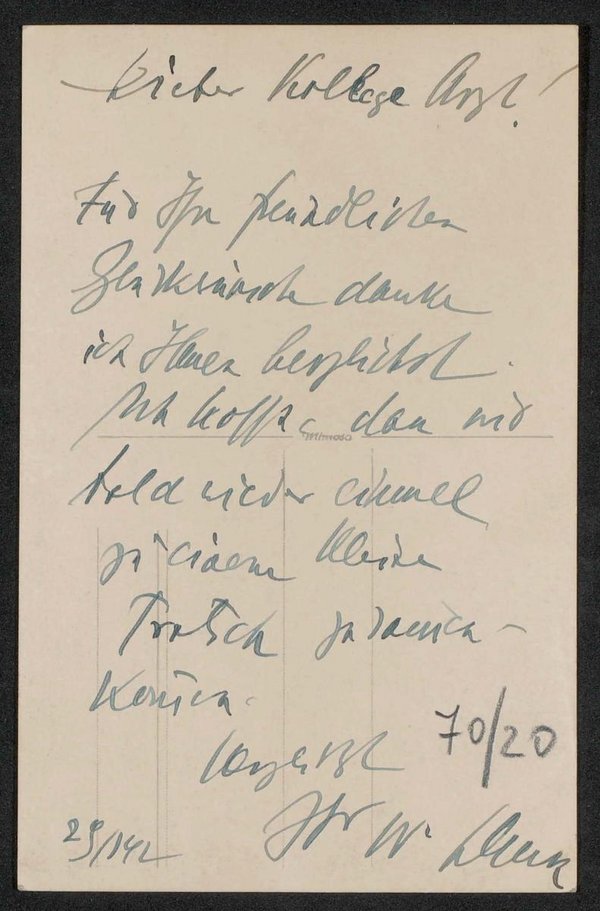 Lieber Kollege Arzt!
Für Ihre freundlichen
Glückwünsche danke
ich Ihnen herzlichst.
Ich hoffe, dass wir
Mimosa
bald wieder einmal
zu einem kleinen
Tratsch zusammen-
kommen.
Herzlichst
70/20
Ihr W.
29/